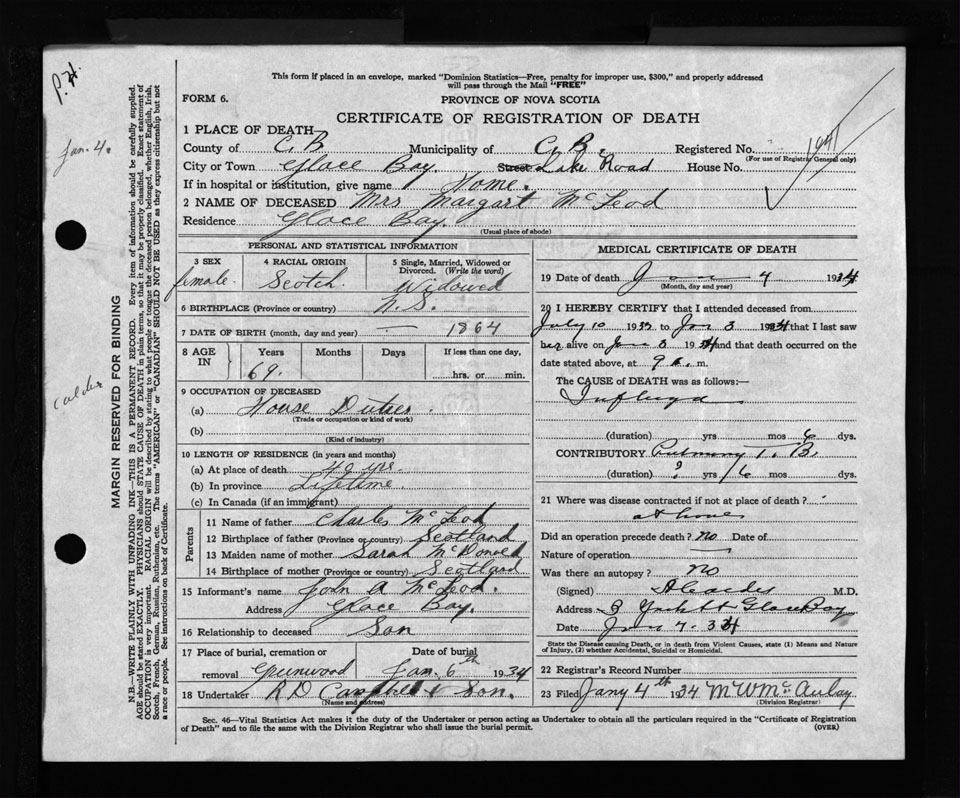 P.H.
Jan. 4.
calder
This form if placed in an envelope, marked "Dominion Statistics—Free, penalty for improper use, $300," and properly addressed
will pass through the Mail "FREE"
FORM 6.
PROVINCE OF NOVA SCOTIA
CERTIFICATE OF REGISTRATION OF DEATH
1 PLACE OF DEATH
County of C.B Municipality of C.B. Registered No.
(For use of Registrar General only)
City or Town Glace Bay. Street Lake Road House No.
If in hospital or institution, give name Home.
2 NAME OF DECEASED Mrs Margart McLeod
Residence Glace Bay.
(Usual place of abode)
PERSONAL AND STATISTICAL INFORMATION
3 SEX
female.
4 RACIAL ORIGIN
Scotch.
5 Single, Married, Widowed or
Divorced. (Write the word)
Widowed
6 BIRTHPLACE (Province or country) N.S.
7 DATE OF BIRTH (month, day and year) — 1864
8 AGE IN
Years
69.
Months
Days
If less than one day,
hrs. or min.
9 OCCUPATION OF DECEASED
(a) House Duties.
(Trade or occupation or kind of work)
(b)
(Kind of industry)
10 LENGTH OF RESIDENCE (in years and months)
(a) At place of death 40 yrs.
(b) In province Lifetime.
(c) In Canada (if an immigrant)
Parents
11 Name of father Charles McLeod
12 Birthplace of father (Province or country) Scotland
13 Maiden name of mother Sarah McDonald
14 Birthplace of mother (Province or country) Scotland
15 Informant's name John A McLeod.
Address Glace Bay.
16 Relationship to deceased Son
17 Place of burial, cremation or
removal Greenwood
Date of burial
Jan. 6th 1934
18 Undertaker R D Campbell & Son.
(Name and address)
MEDICAL CERTIFICATE OF DEATH
19 Date of death Jan 4 1934
(Month, day and year)
20 I HEREBY CERTIFY that I attended deceased from
July 10 193 to Jan 3 1934 that I last saw
her alive on Jan 3 1934 and that death occurred on the
date stated above, at 9 a. m.
The CAUSE of DEATH was as follows:—
(duration) yrs mos 6 dys.
CONTRIBUTORY Pulmonary T.B.
(duration) ? yrs mos dys.
21 Where was disease contracted if not at place of death?
at home
Did an operation precede death? no Date of
Nature of operation —
Was there an autopsy? no
(Signed) M.D.
Address Glace Bay
Date Jan 7. 34
State the Disease causing Death, or in death from Violent Causes, state (1) Means and Nature
of Injury, (2) whether Accidental, Suicidal or Homicidal.
22 Registrar's Record Number
23 Filed Jany 4th 1934 M W McAulay
(Division Registrar)
Sec. 46—Vital Statistics Act makes it the duty of the Undertaker or person acting as Undertaker to obtain all the particulars required in the "Certificate of Registration
of Death" and to file the same with the Division Registrar who shall issue the burial permit.
(OVER)
MARGIN RESERVED FOR BINDING
N.B.—WRITE PLAINLY WITH UNFADING INK—THIS IS A PERMANENT RECORD. Every item of information should be carefully supplied.
AGE should be stated EXACTLY. PHYSICIANS should STATE CAUSE OF DEATH in plain terms, so that it may be properly classified. Exact statement of
OCCUPATION is very important. RACIAL ORIGIN will be described by stating to what people or tongue the deceased person belonged, whether English, Irish,
Scotch, French, German, Russian, Ruthenian, etc. The terms "AMERICAN" or "CANADIAN" SHOULD NOT BE USED as they express citizenship but not
a race or people. See instructions on back of Certificate.